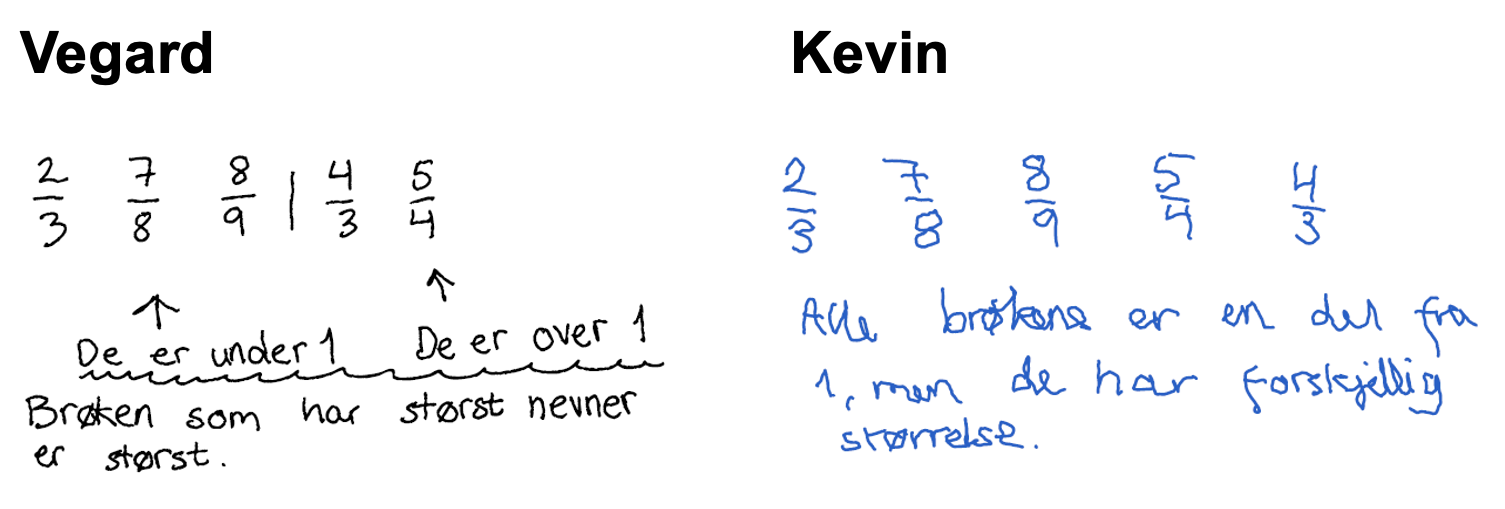 Vegard
2/3 7/8 8/9 | 4/3 5/4
De er under 1 De er over 1
Brøken som har størst nevner
er størst.
Kevin
2/3 7/8 8/9 5/4 4/3
Alle brøkene er en del fra
1, men de har forskjellig
størrelse.